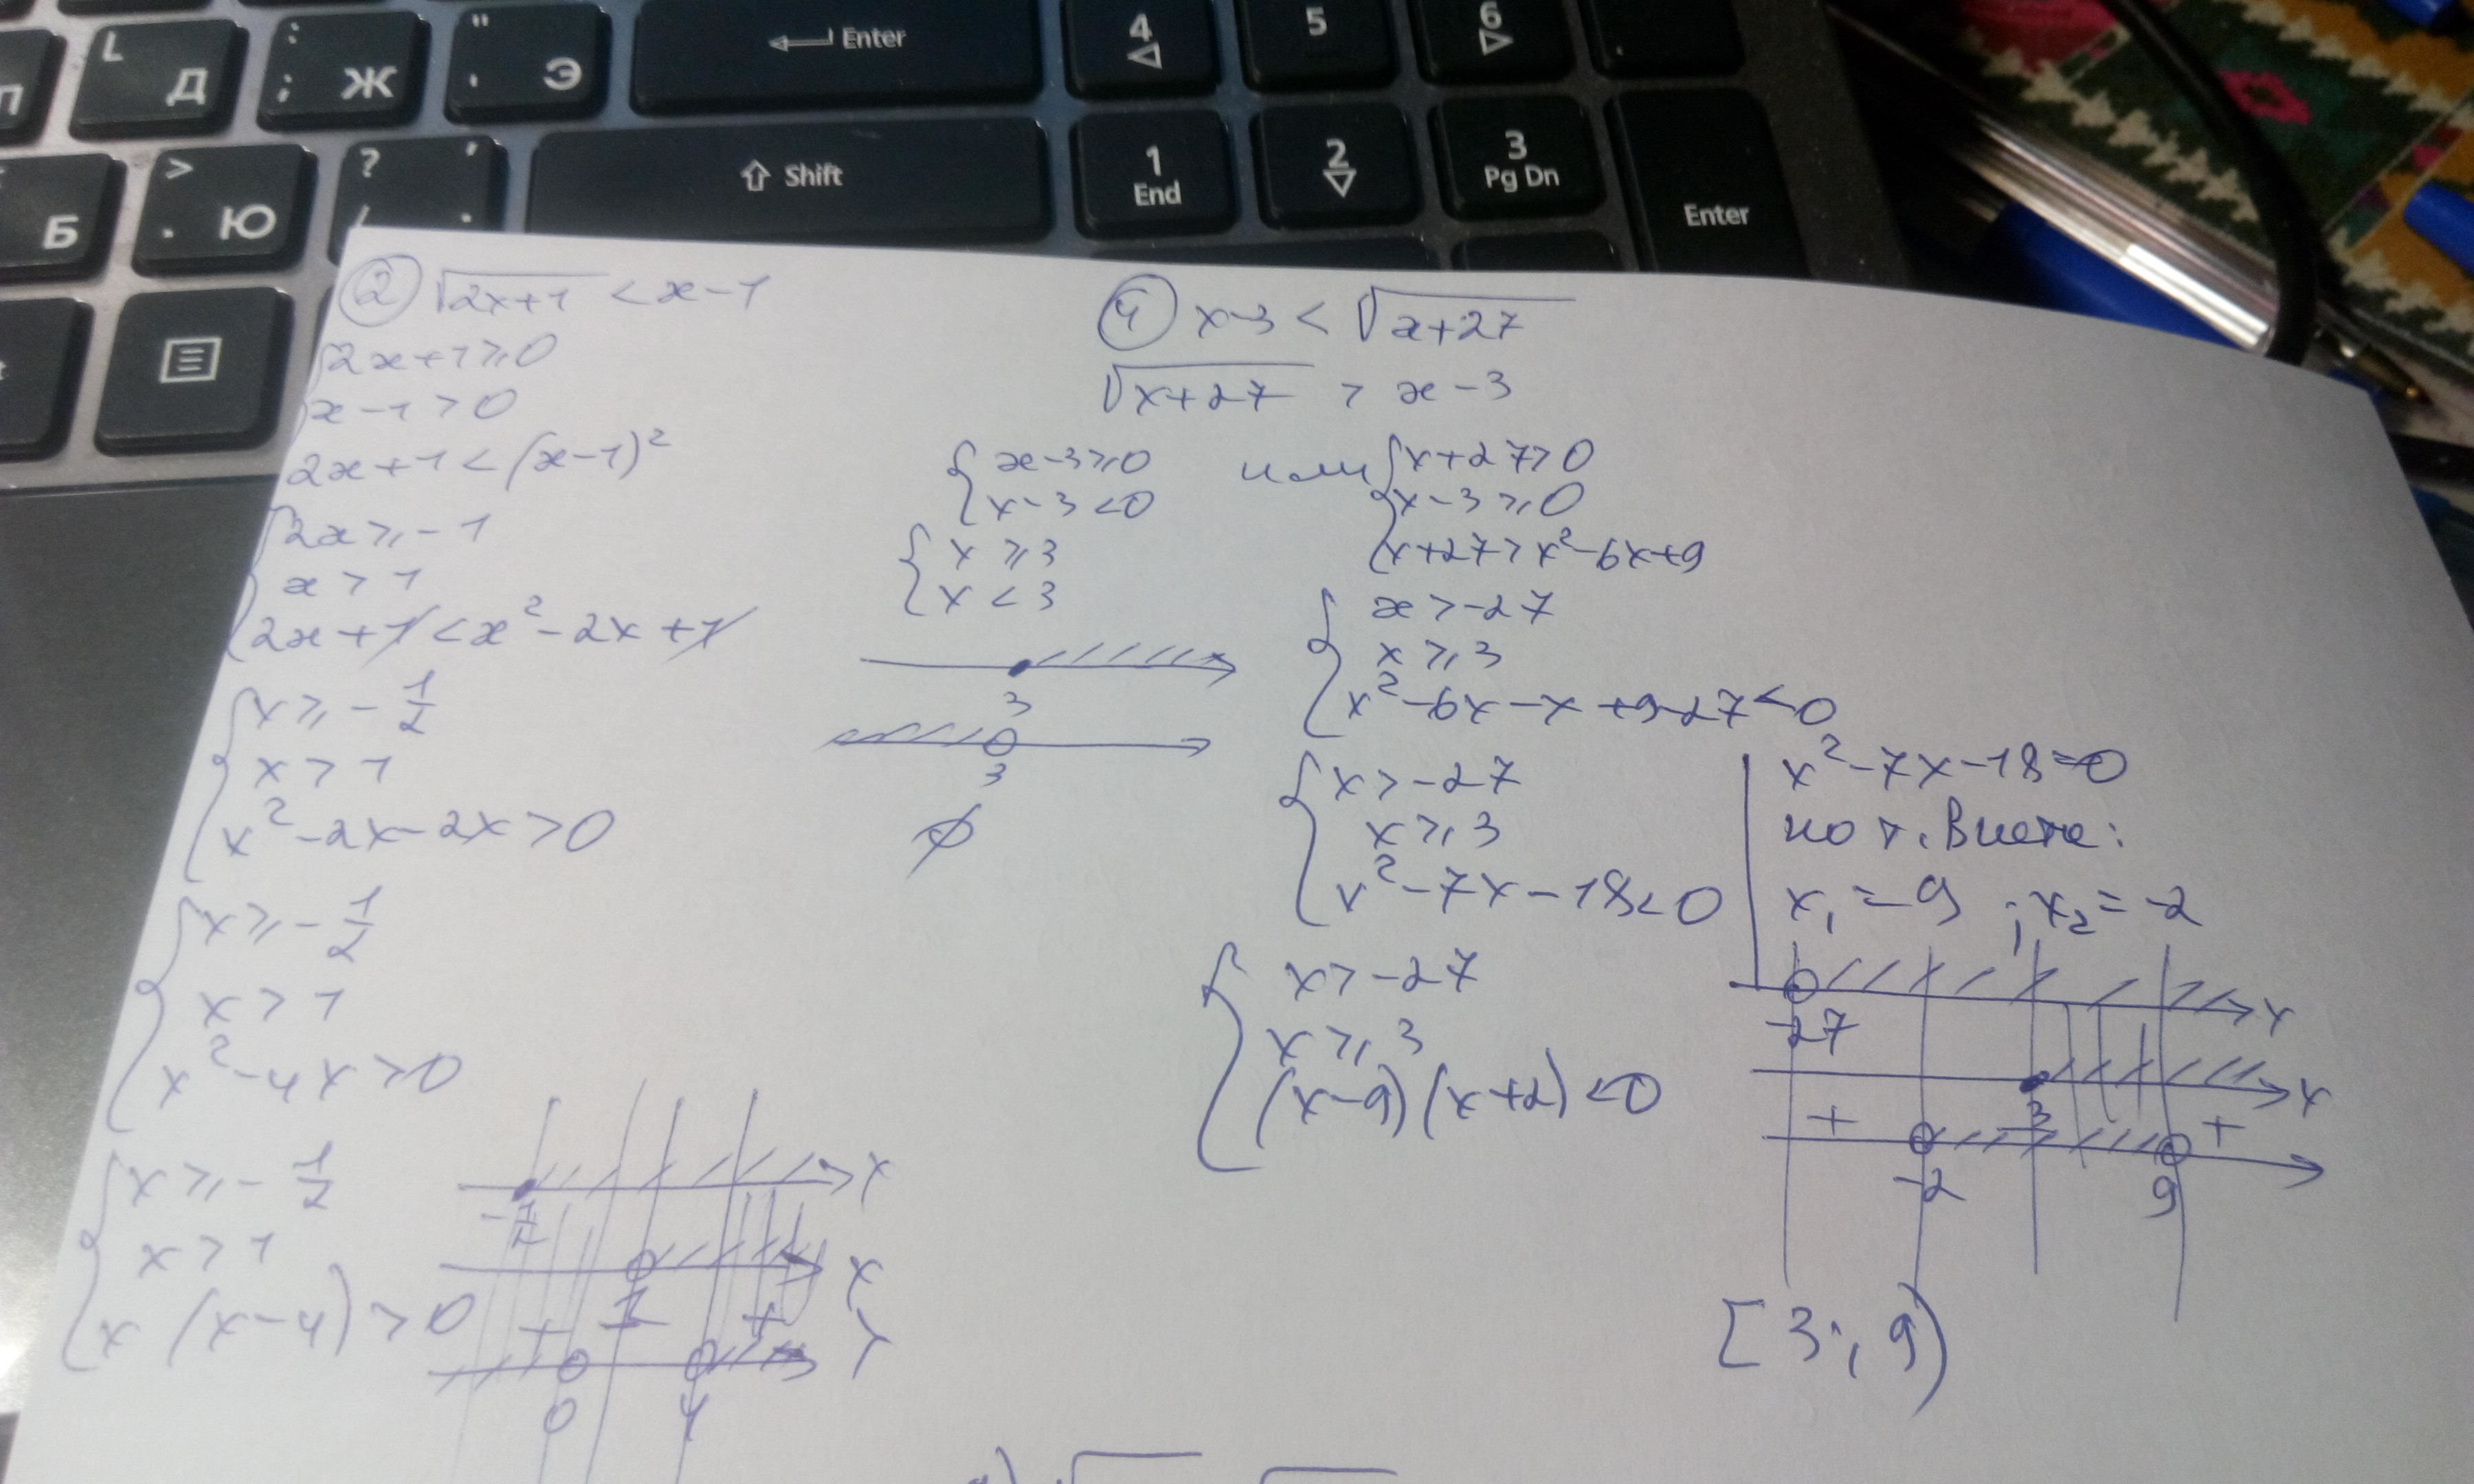 L Д
: ; Ж
" ' Э
Enter
4
5
6
.
П
Б
> . Ю
? / .
Shift
1 End
2
3 Pg Dn
Enter
② √(2x+1) < x-1
{ 2x+1 ≥ 0
x-1 > 0
2x+1 < (x-1)²
{ 2x ≥ -1
x > 1
2x+1 < x²-2x+1
{ x ≥ -1/2
x > 1
x²-2x-2x > 0
{ x ≥ -1/2
x > 1
x²-4x > 0
{ x ≥ -1/2
x > 1
x(x-4) > 0
-1/2 x
1 x
+ - +
0 4
④ x-3 < √(x+27)
√(x+27) > x-3
{ x-3 ≥ 0
x-3 < 0
{ x ≥ 3
x < 3
3
3
∅
или { x+27 > 0
x-3 ≥ 0
x+27 > x²-6x+9
{ x > -27
x ≥ 3
x²-6x-x+9-27 < 0
{ x > -27
x ≥ 3
x²-7x-18 < 0
x²-7x-18=0
по т. Виета:
x₁ = 9 ; x₂ = -2
{ x > -27
x ≥ 3
(x-9)(x+2) < 0
-27 x
3 x
+ - +
-2 9
[3; 9)